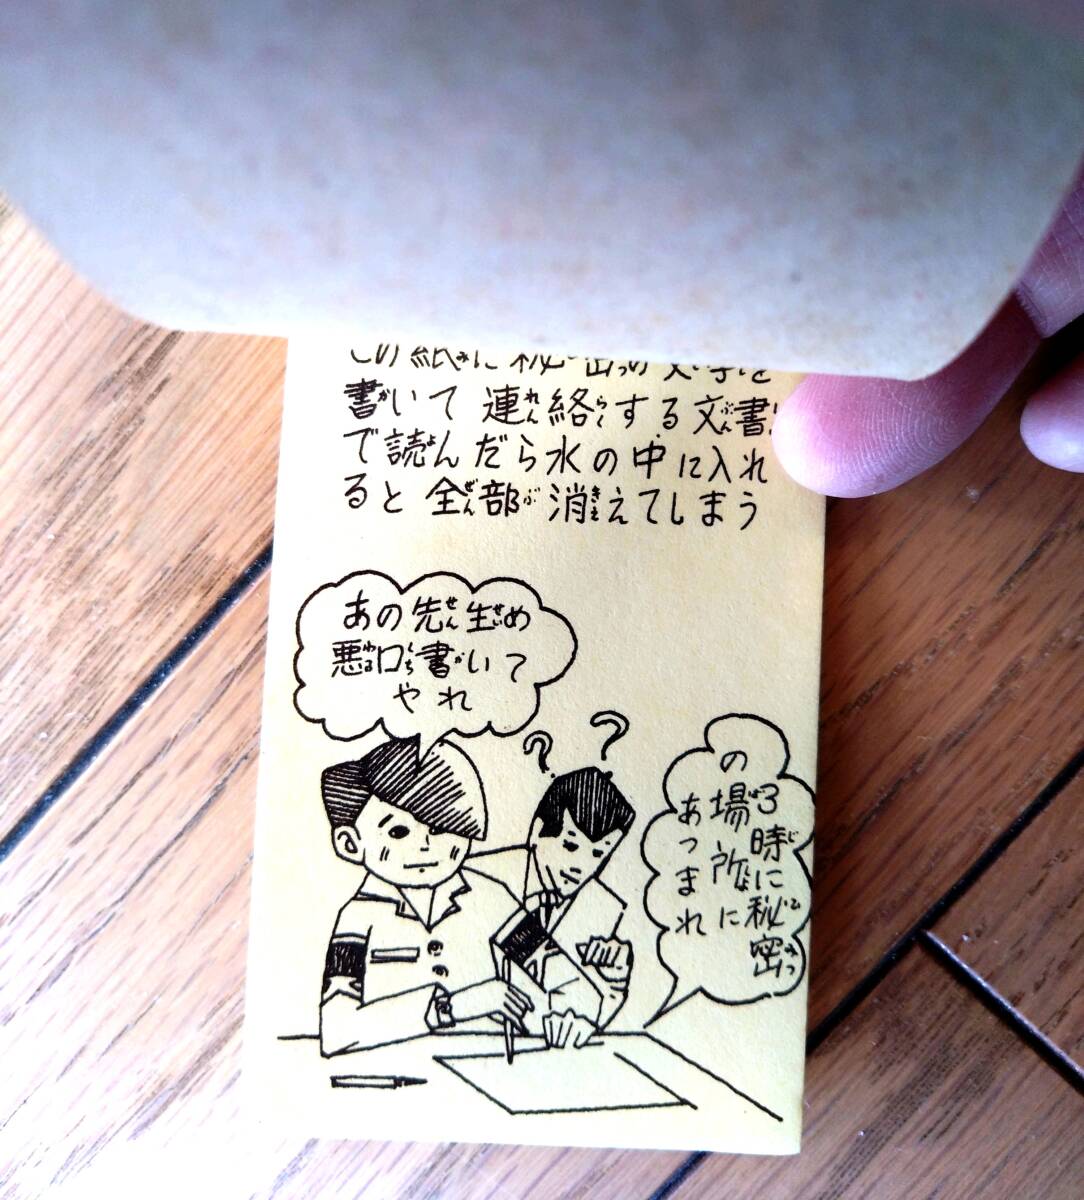 この紙に秘密の文字を
書いて連絡する文書
で読んだら水の中に入れ
ると全部消えてしまう
あの先生め
悪口書いて
やれ
？
？
3時に秘密
の場所に
あつまれ